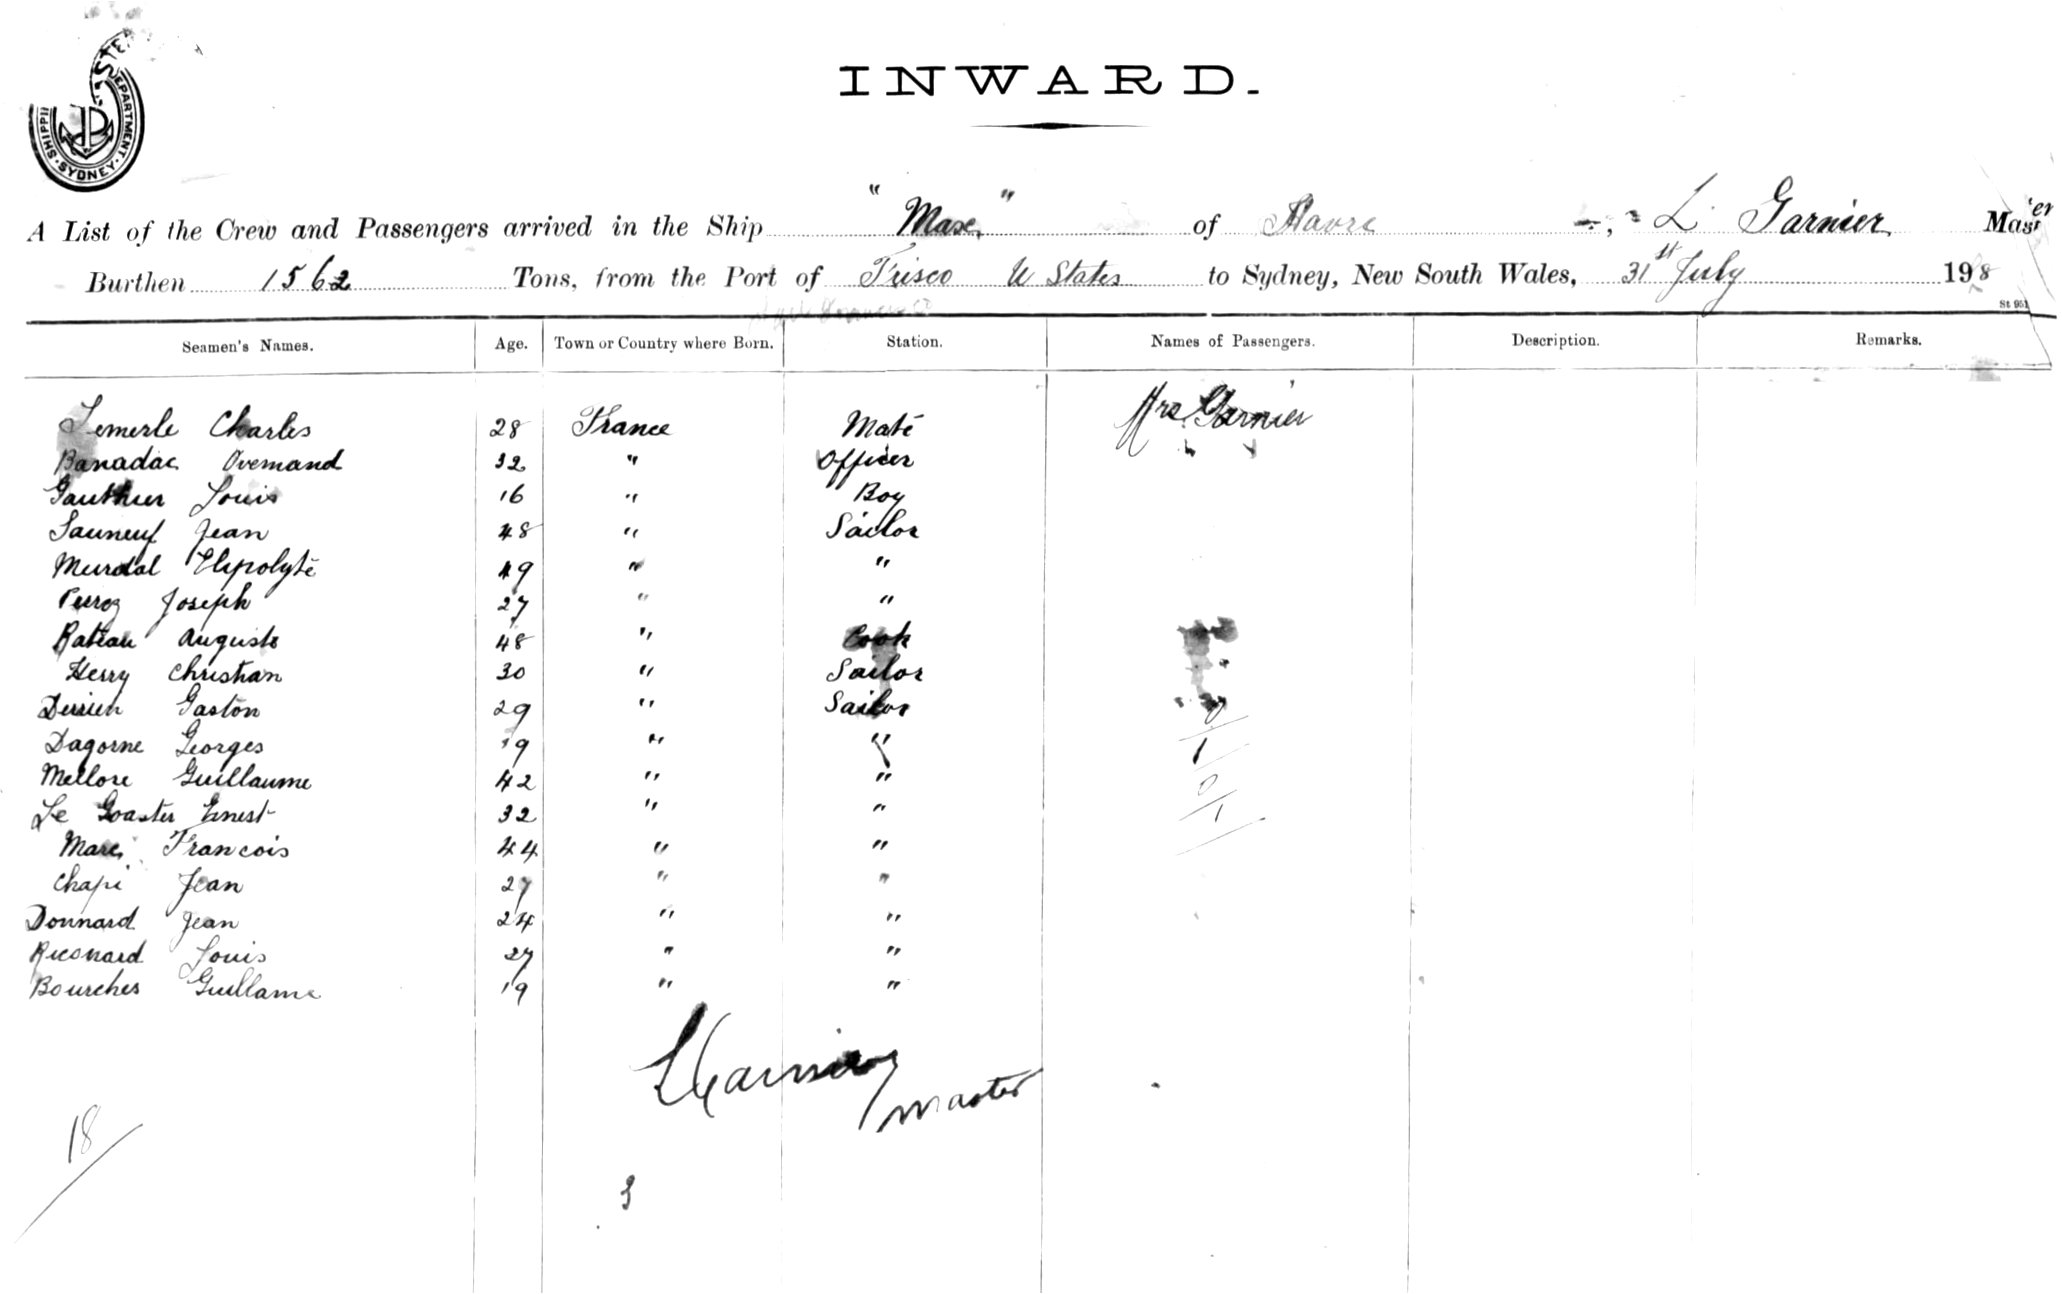 SHIPPING MASTER'S DEPARTMENT · SYDNEY
INWARD.
A List of the Crew and Passengers arrived in the Ship "Max" of Havre, L. Garnier Master
Burthen 1562 Tons, from the Port of Frisco U States to Sydney, New South Wales, 31st July 198
St 951
Seamen's Names. Age. Town or Country where Born. Station. Names of Passengers. Description. Remarks.
Lemerle Charles 28 France Mate Mrs Garnier
Banadac Ovemand 32 " Officer
Gauthier Louis 16 " Boy
Sauneuf Jean 48 " Sailor
Murdal Hipolyte 49 " "
Joseph 27 " "
Rateau Auguste 48 " Cook
Herry Christian 30 " Sailor
Derrien Gaston 29 " Sailor
Dagorne Georges 19 " "
Mellore Guillaume 42 " "
Le Goaster Ernest 32 " "
Marc Francois 44 " "
Chapi Jean 27 " "
Donnard Jean 24 " "
Louis 27 " "
Bourches Guillame 19 " "
L Garnier
Master
18